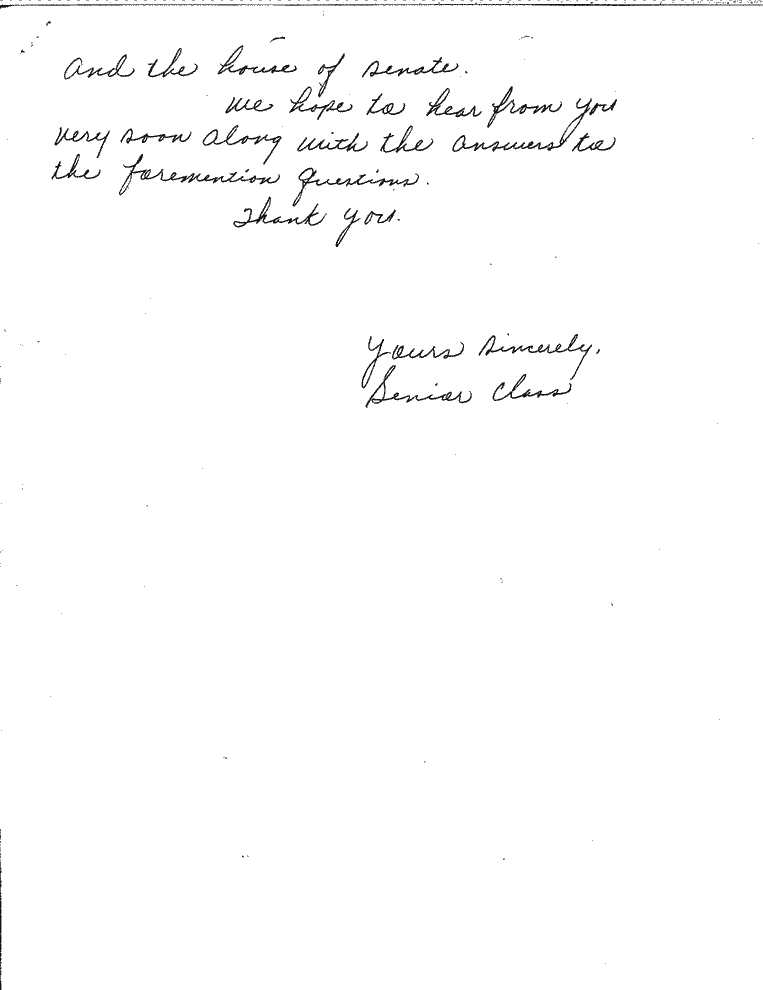 And the house of senate.
We hope to hear from you
very soon along with the answers to
the foremention questions.
Thank you.
Yours sincerely,
Senior Class